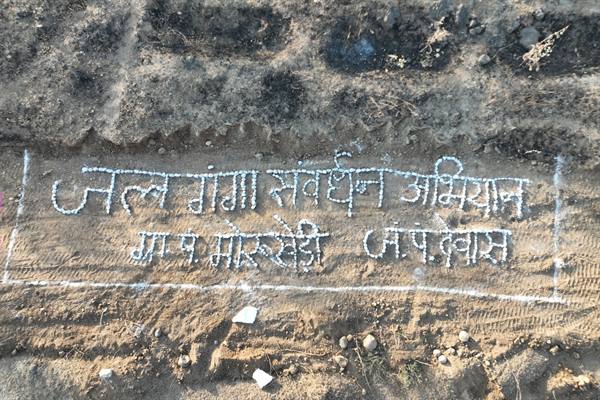 जल गंगा संवर्धन अभियान
ग्रा.पं. मोरूखेड़ी ज.पं. देवास